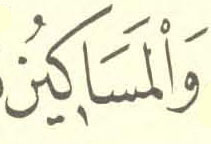 وَالْمَسَاكِينُ